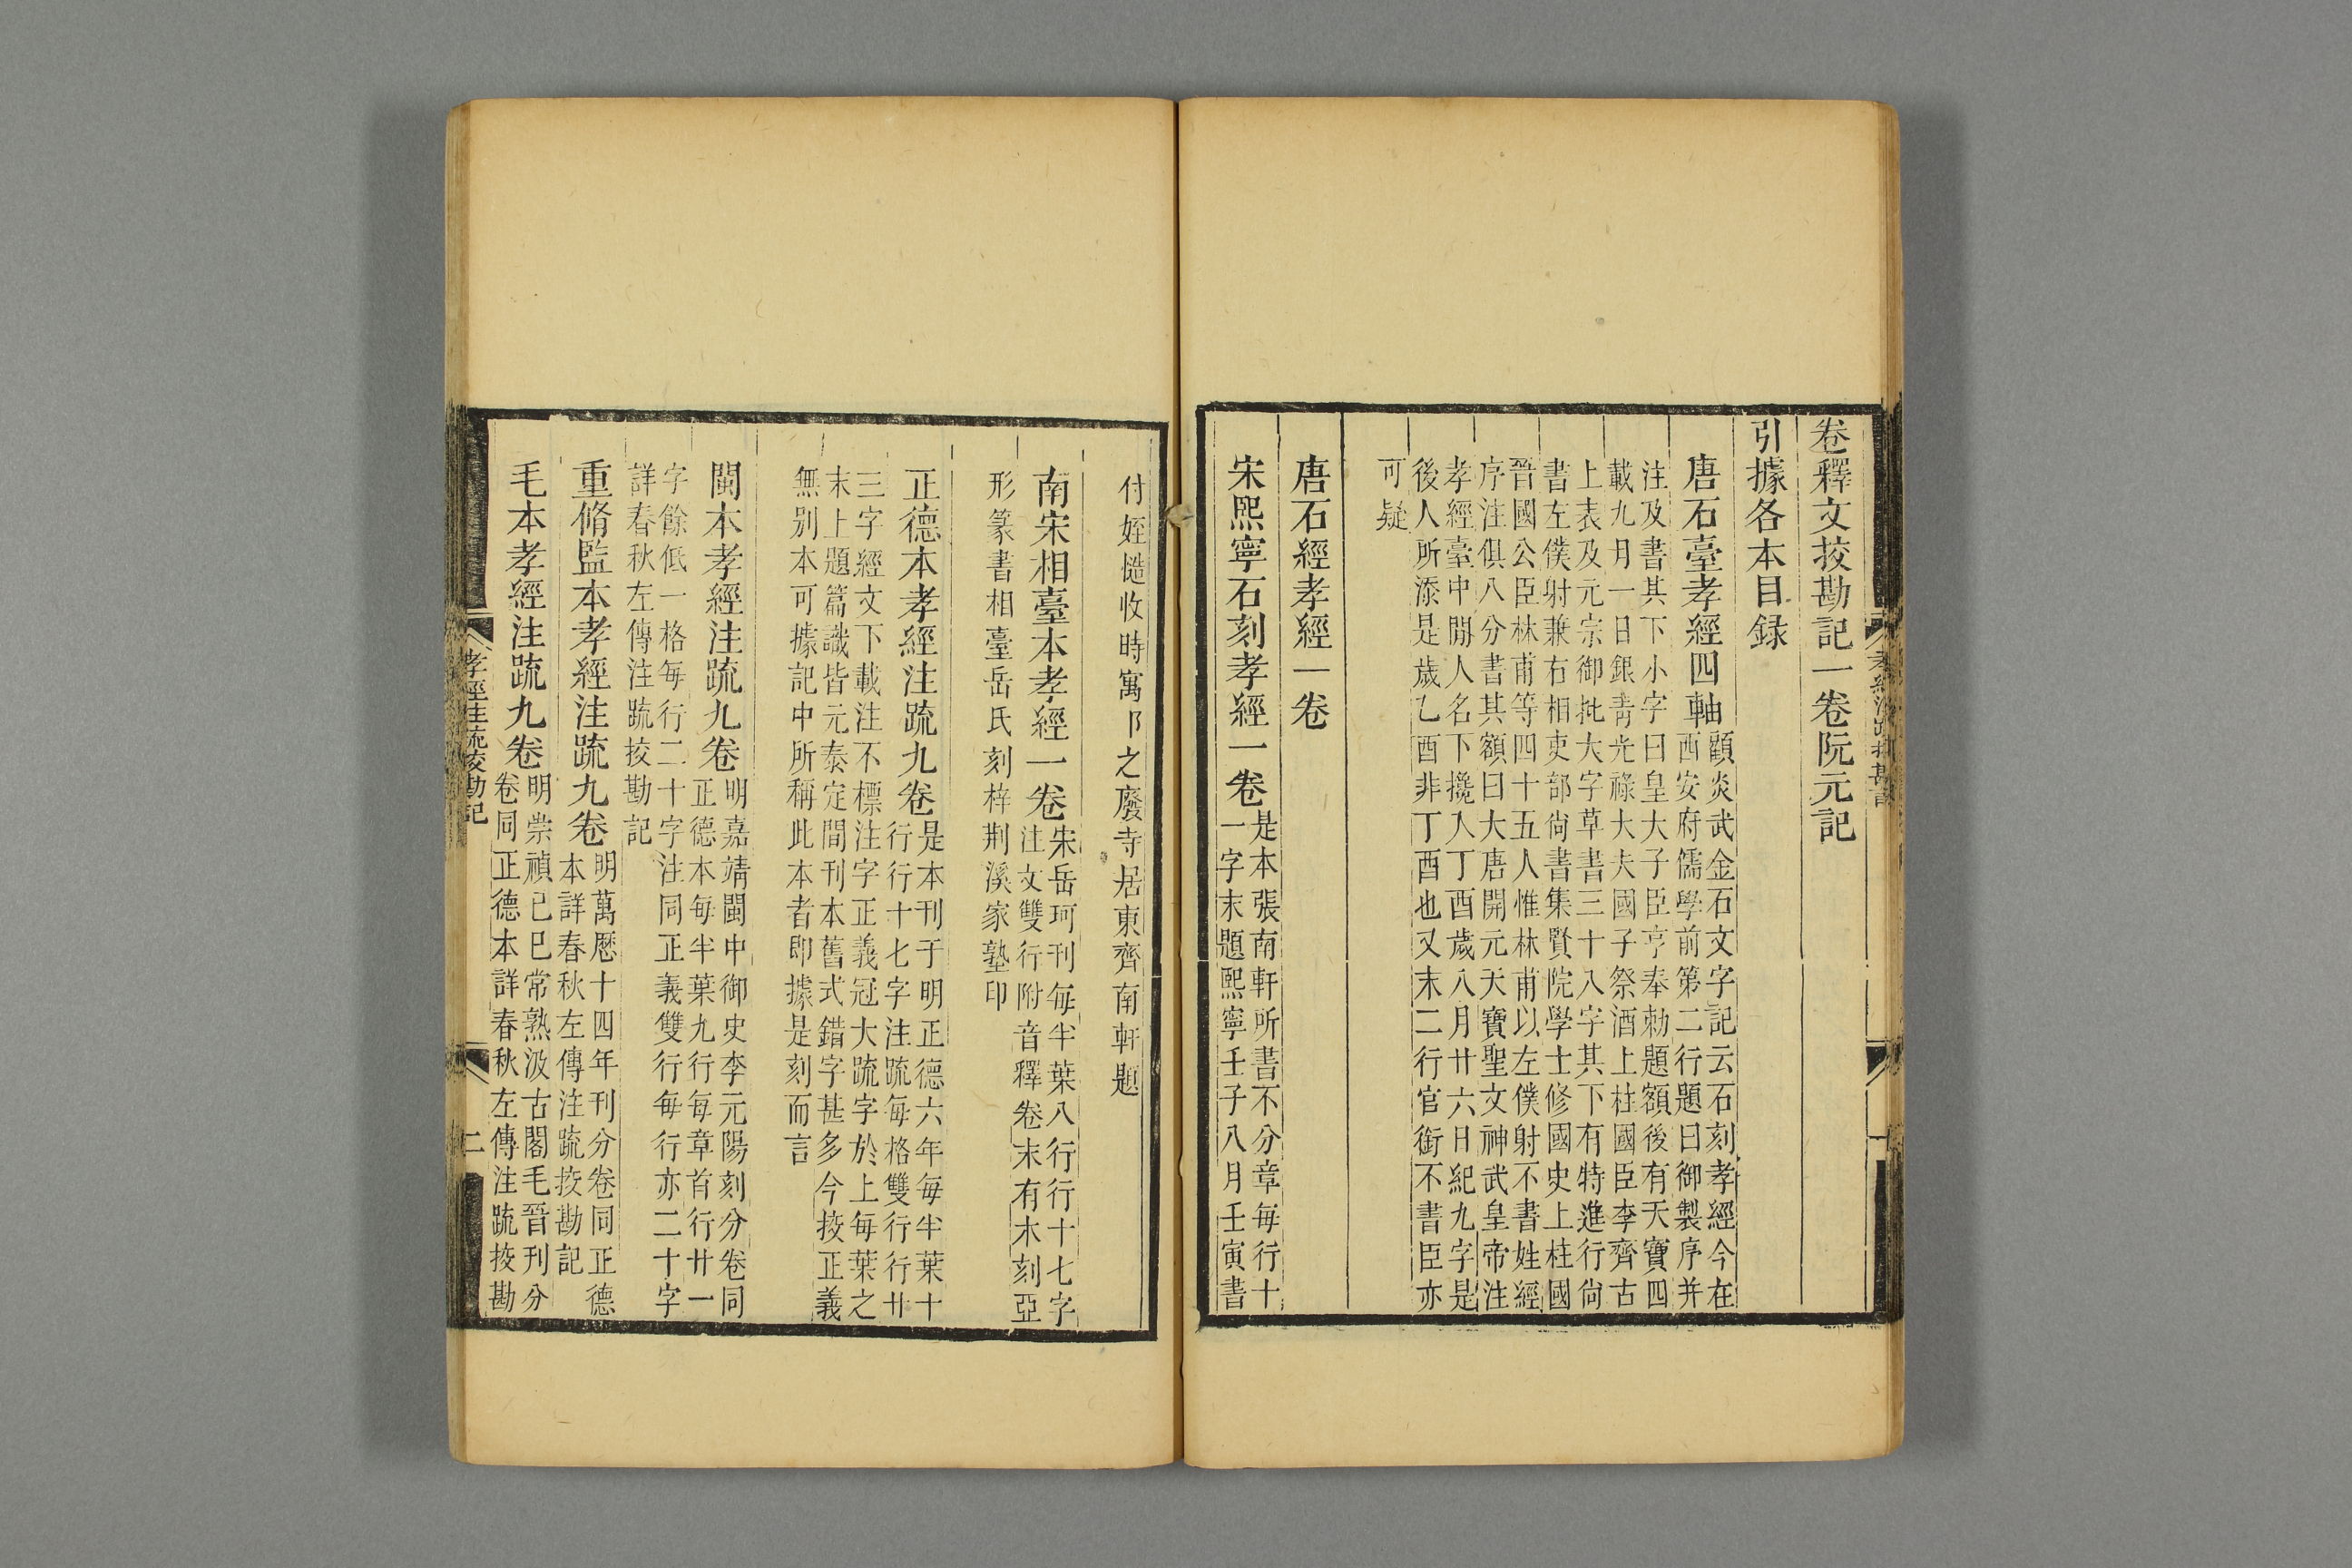 卷釋文挍勘記一卷阮元記
引據各本目録
唐石臺孝經四軸
顧炎武金石文字記云石刻孝經今在
西安府儒學前第二行題曰御製序并
注及書其下小字曰皇大子臣亨奉勑題額後有天寶四
載九月一日銀青光祿大夫國子祭酒上柱國臣李齊古
上表及元宗御批大字草書三十八字其下有特進行尙
書左僕射兼右相吏部尙書集賢院學士修國史上柱國
晉國公臣林甫等四十五人惟林甫以左僕射不書姓經
序注俱八分書其額曰大唐開元天寶聖文神武皇帝注
孝經臺中閒人名下攙入丁酉歲八月廿六日紀九字是
後人所添是歲乙酉非丁酉也又末二行官銜不書臣亦
可疑
唐石經孝經一卷
宋熙寧石刻孝經一卷
是本張南軒所書不分章每行十
一字末題熙寧壬子八月壬寅書
付姪慥收時寓卩之廢寺居東齊南軒題
南宋相臺本孝經一卷
宋岳珂刊每半葉八行行十七字
注文雙行附音釋卷末有木刻亞
形篆書相臺岳氏刻梓荆溪家塾印
正德本孝經注疏九卷
是本刊于明正德六年每半葉十
行行十七字注疏每格雙行行廿
三字經文下載注不標注字正義冠大疏字於上每葉之
末上題篇識皆元泰定間刊本舊式錯字甚多今挍正義
無别本可據記中所稱此本者即據是刻而言
閩本孝經注疏九卷
明嘉靖閩中御史李元陽刻分卷同
正德本每半葉九行每章首行廿一
字餘低一格每行二十字注同正義雙行每行亦二十字
詳春秋左傳注疏挍勘記
重脩監本孝經注疏九卷
明萬厯十四年刊分卷同正德
本詳春秋左傳注疏挍勘記
毛本孝經注疏九卷
明崇禎己巳常熟汲古閣毛晉刊分
卷同正德本詳春秋左傳注疏挍勘
孝經注疏挍勘記
二